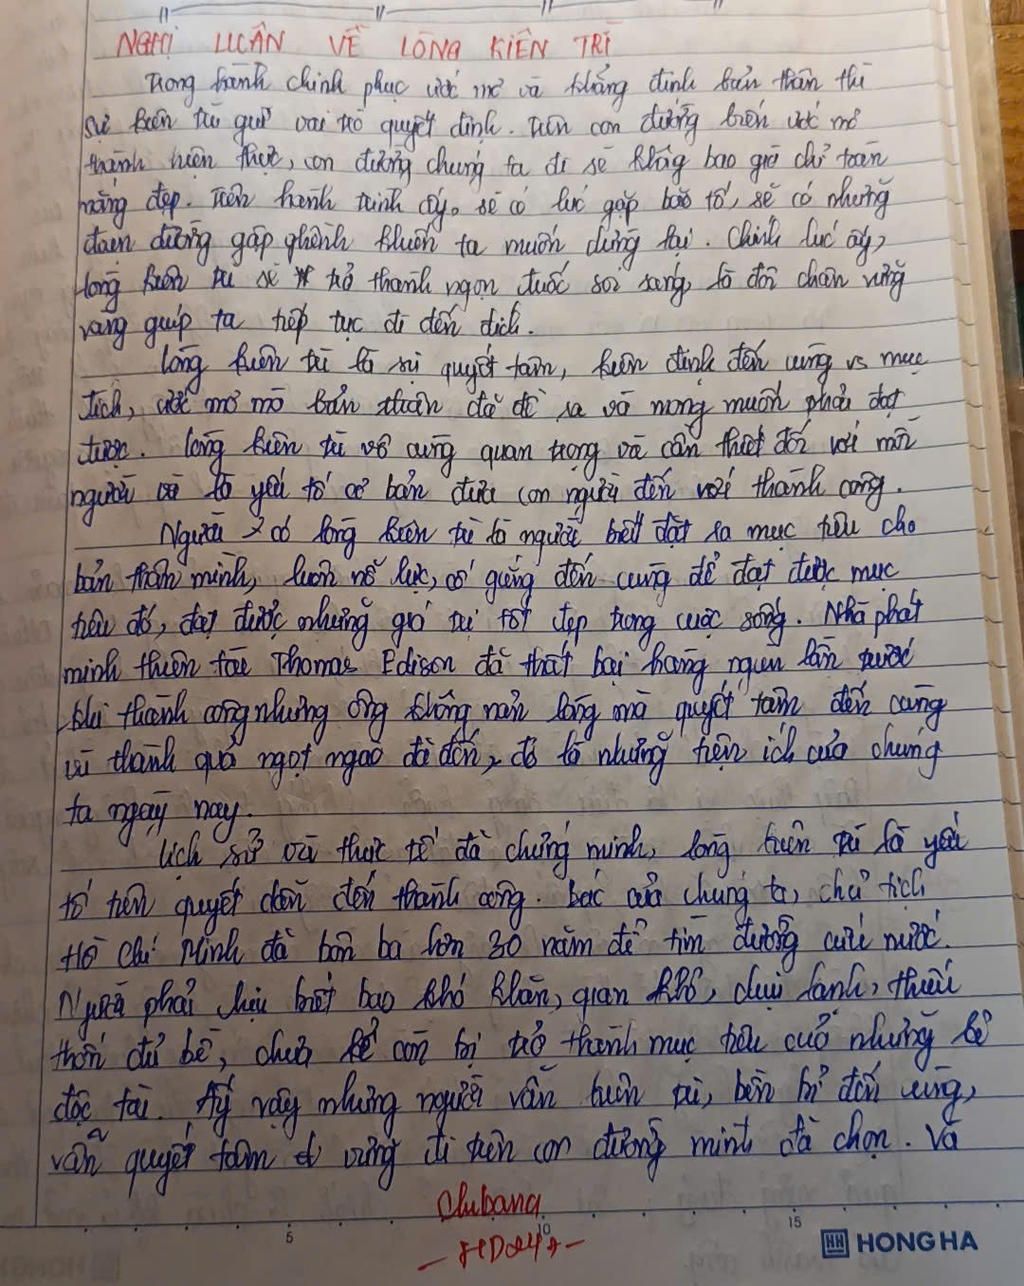 NGHỊ LUẬN VỀ LÒNG KIÊN TRÌ
Trong hành chinh phục ước mơ và khẳng định bản thân thì
sự kiên trì giữ vai trò quyết định. Trên con đường biến ước mơ
thành hiện thực, con đường chúng ta đi sẽ không bao giờ chỉ toàn
nắng đẹp. Trên hành trình ấy, sẽ có lúc gặp bão tố, sẽ có những
đoạn đường gập ghềnh khiến ta muốn dừng lại. Chính lúc ấy,
lòng kiên trì sẽ trở thành ngọn đuốc soi sáng, là đôi chân vững
vàng giúp ta tiếp tục đi đến đích.
Lòng kiên trì là sự quyết tâm, kiên định đến cùng vs mục
đích, ước mơ mà bản thân đã đề ra và mong muốn phải đạt
được. Lòng kiên trì vô cùng quan trọng và cần thiết đối với mỗi
người và là yếu tố cơ bản đưa con người đến với thành công.
Người có lòng kiên trì là người biết đặt ra mục tiêu cho
bản thân mình, luôn nỗ lực, cố gắng đến cùng để đạt được mục
tiêu đó, đạt được những giá trị tốt đẹp trong cuộc sống. Nhà phát
minh thiên tài Thomas Edison đã thất bại hàng ngàn lần trước
khi thành công nhưng ông không nản lòng mà quyết tâm đến cùng
và thành quả ngọt ngào đã đến, đó là những tiện ích của chúng
ta ngày nay.
Lịch sử và thực tế đã chứng minh, lòng kiên trì là yếu
tố tiên quyết dẫn đến thành công. Bác của chúng ta, chủ tịch
Hồ Chí Minh đã bôn ba hơn 30 năm để tìm đường cứu nước.
Người phải chịu biết bao khó khăn, gian khổ, chịu lạnh, thiếu
thốn đủ bề, chưa kể còn bị trở thành mục tiêu của những kẻ
độc tài. Ấy vậy nhưng người vẫn kiên trì, bền bỉ đến cùng,
vẫn quyết tâm vững đi trên con đường mình đã chọn. Và
5
10
15
HH HONG HA